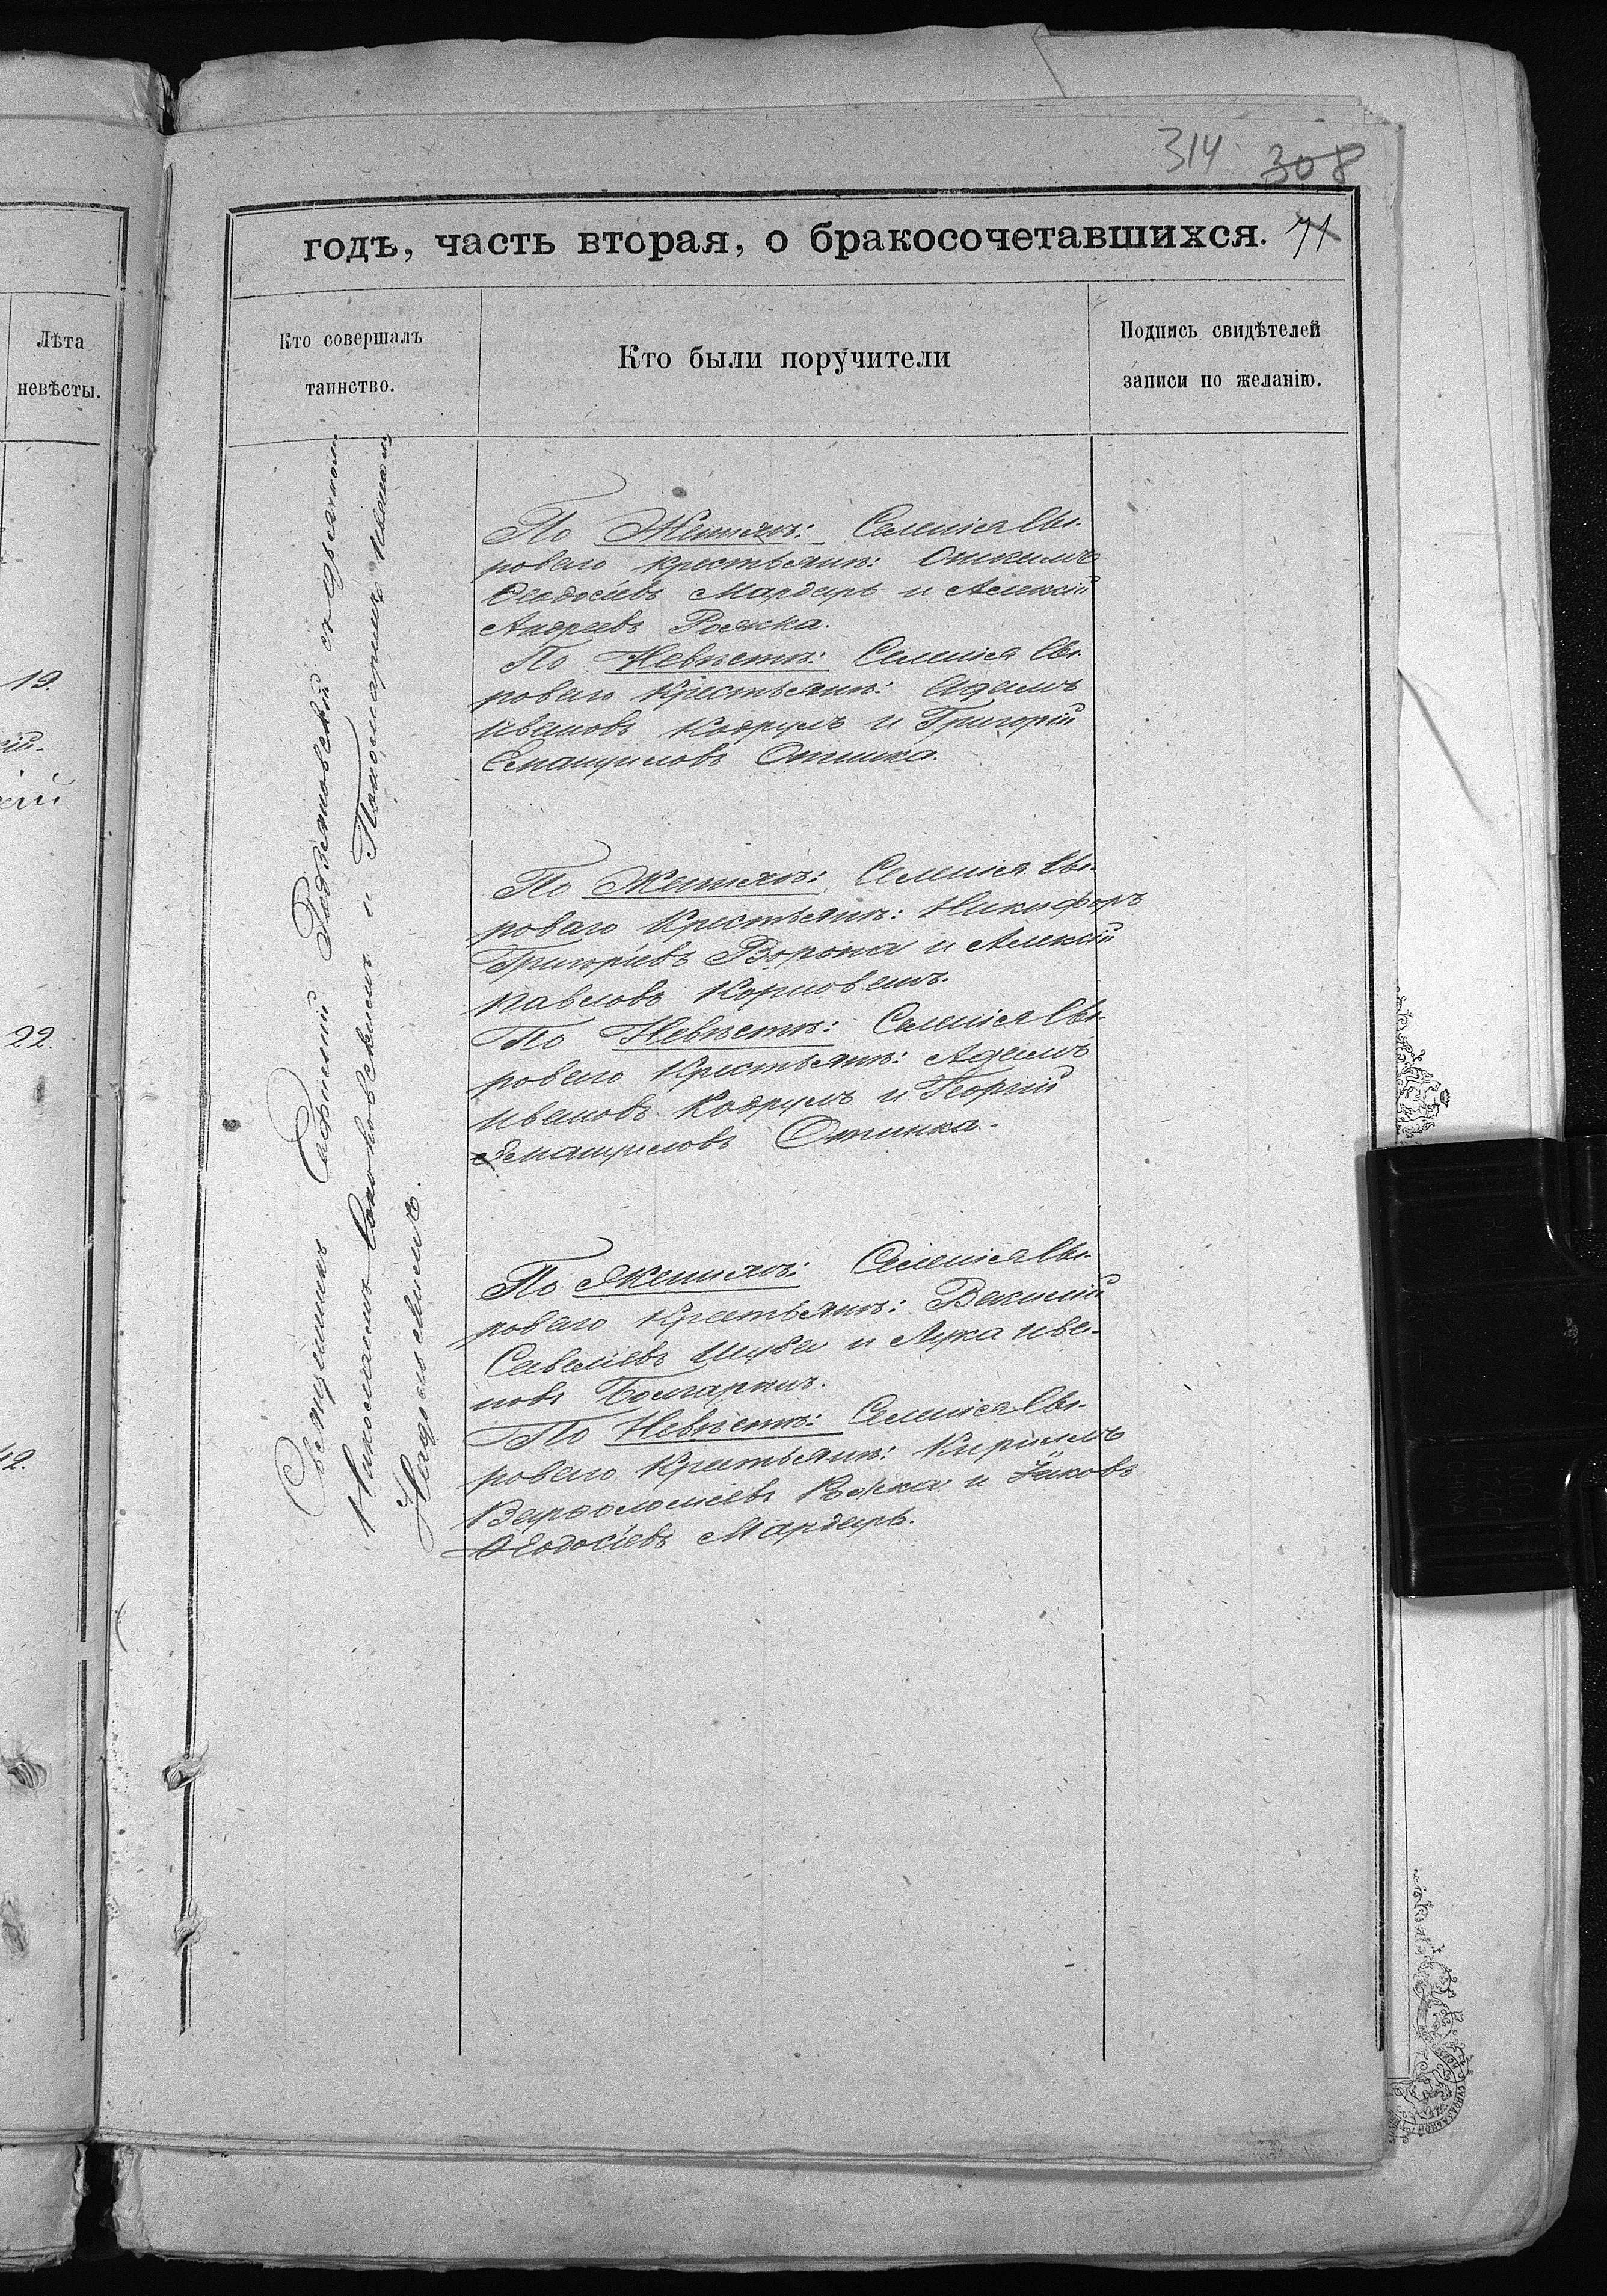 314 308
годъ, часть вторая, о бракосочетавшихся. 71
Лѣта
невѣсты.
Кто совершалъ
таинство.
Кто были поручители
Подпись свидѣтелей
записи по желанію.
19.
22.
42.
Священникъ Сафроній Радзеновскій съ
Псаломщикомъ и Пономаремъ
По Женихѣ: Селенія Сы-
роваго крестьяне:
Феодосіевъ Мардарь и Алексій
Андреевъ Рошка.
По Невѣстѣ: Селенія Сы-
роваго крестьяне: Адамъ
Ивановъ Кодрулъ и Григорій
Емануиловъ Опинка.
По Женихѣ: Селенія Сы-
роваго Крестьяне: Никифоръ
Григоріевъ Ворона и Алексій
Павловъ
По Невѣстѣ: Селенія Сы-
роваго Крестьяне: Адамъ
Ивановъ Кодрулъ и Георгій
Емануиловъ Опинка.
По Женихѣ: Селенія Сы-
роваго Крестьяне: Василій
Савеліевъ Шуба и Лука Ива-
новъ Болгаринъ.
По Невѣстѣ: Селенія Сы-
роваго Крестьяне: Кириллъ
Варфоломеевъ Рошка и Іаковъ
Феодосіевъ Мардарь.